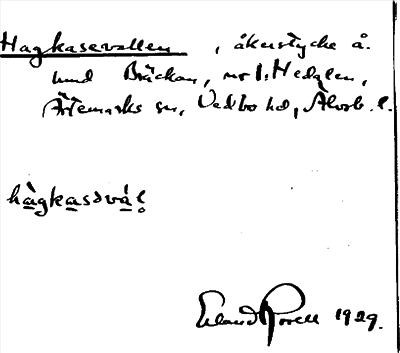 Hagkasevallen, åkerstycke å.
und Bräckan, nr 1. Hedalen,
Ärtemarks sn, Vedbo hd, Älvsb. l.
hàgkasəvál
Erland Rosell 1929.